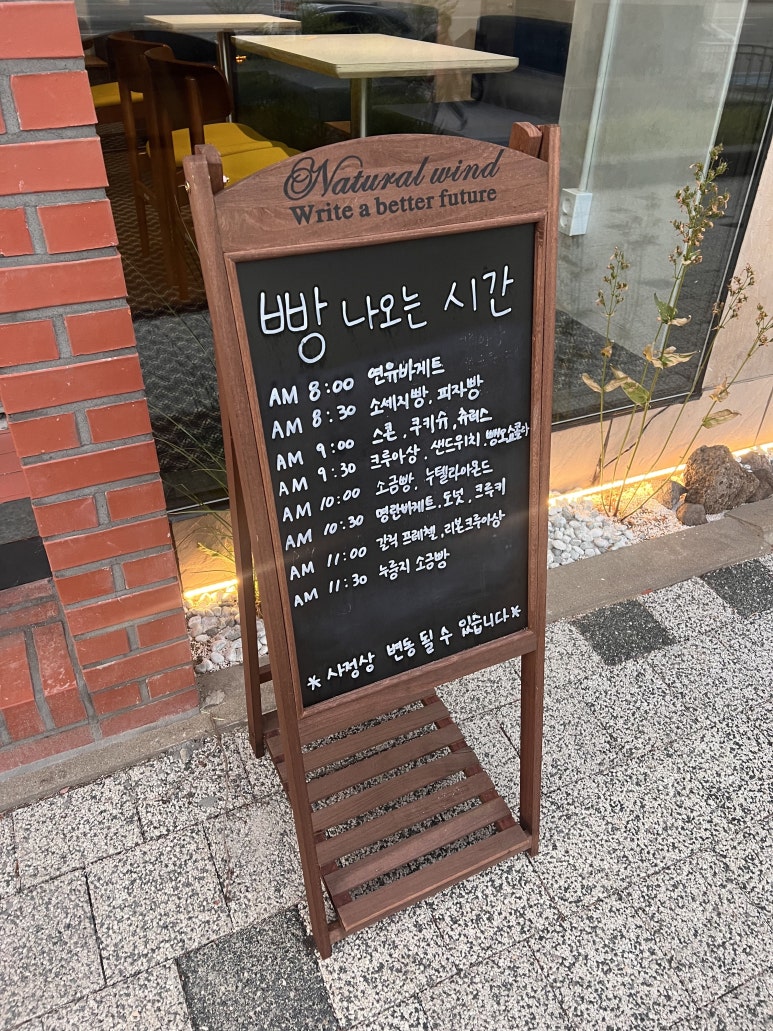 Natural wind
Write a better future
빵 나오는 시간
AM 8:00 연유바게트
AM 8:30 소세지빵, 피자빵
AM 9:00 스콘, 쿠키슈, 츄러스
AM 9:30 크루아상, 샌드위치, 뺑오쇼콜라
AM 10:00 소금빵, 누텔라아몬드
AM 10:30 명란바게트, 도넛, 크룩키
AM 11:00 갈릭 프레첼, 리본크루아상
AM 11:30 누룽지 소금빵
* 사정상 변동 될 수 있습니다 *